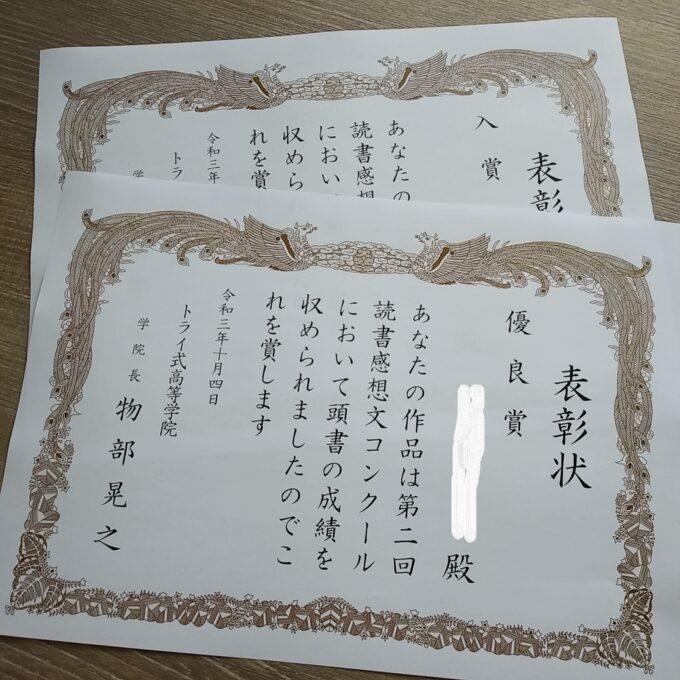 表彰
入賞
あなたの
読書感想
におい
収めら
れを賞
令和三年
トラ
学
表彰状
優良賞
殿
あなたの作品は第二回
読書感想文コンクール
において頭書の成績を
収められましたのでこ
れを賞します
令和三年十月四日
トライ式高等学院
学院長 物部晃之